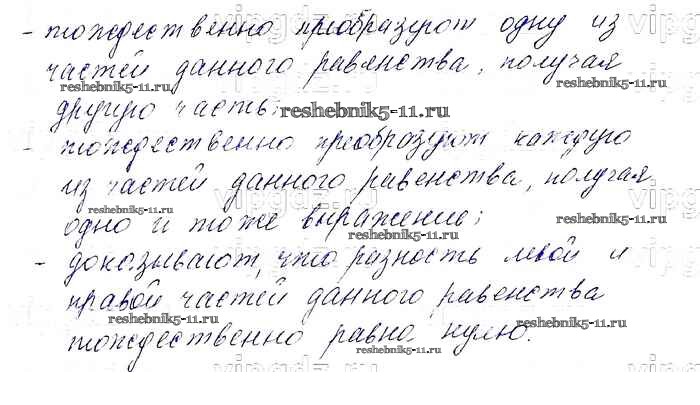 - тождественно преобразуют одну из
частей данного равенства, получая
reshebnik5-11.ru reshebnik5-11.ru
другую часть; reshebnik5-11.ru
- тождественно преобразуют каждую
из частей данного равенства, получая
reshebnik5-11.ru reshebnik5-11.ru
одно и тоже выражение;
reshebnik5-11.ru
- доказывают, что разность левой и
правой частей данного равенства
reshebnik5-11.ru reshebnik5-11.ru
тождественно равна нулю.
reshebnik5-11.ru